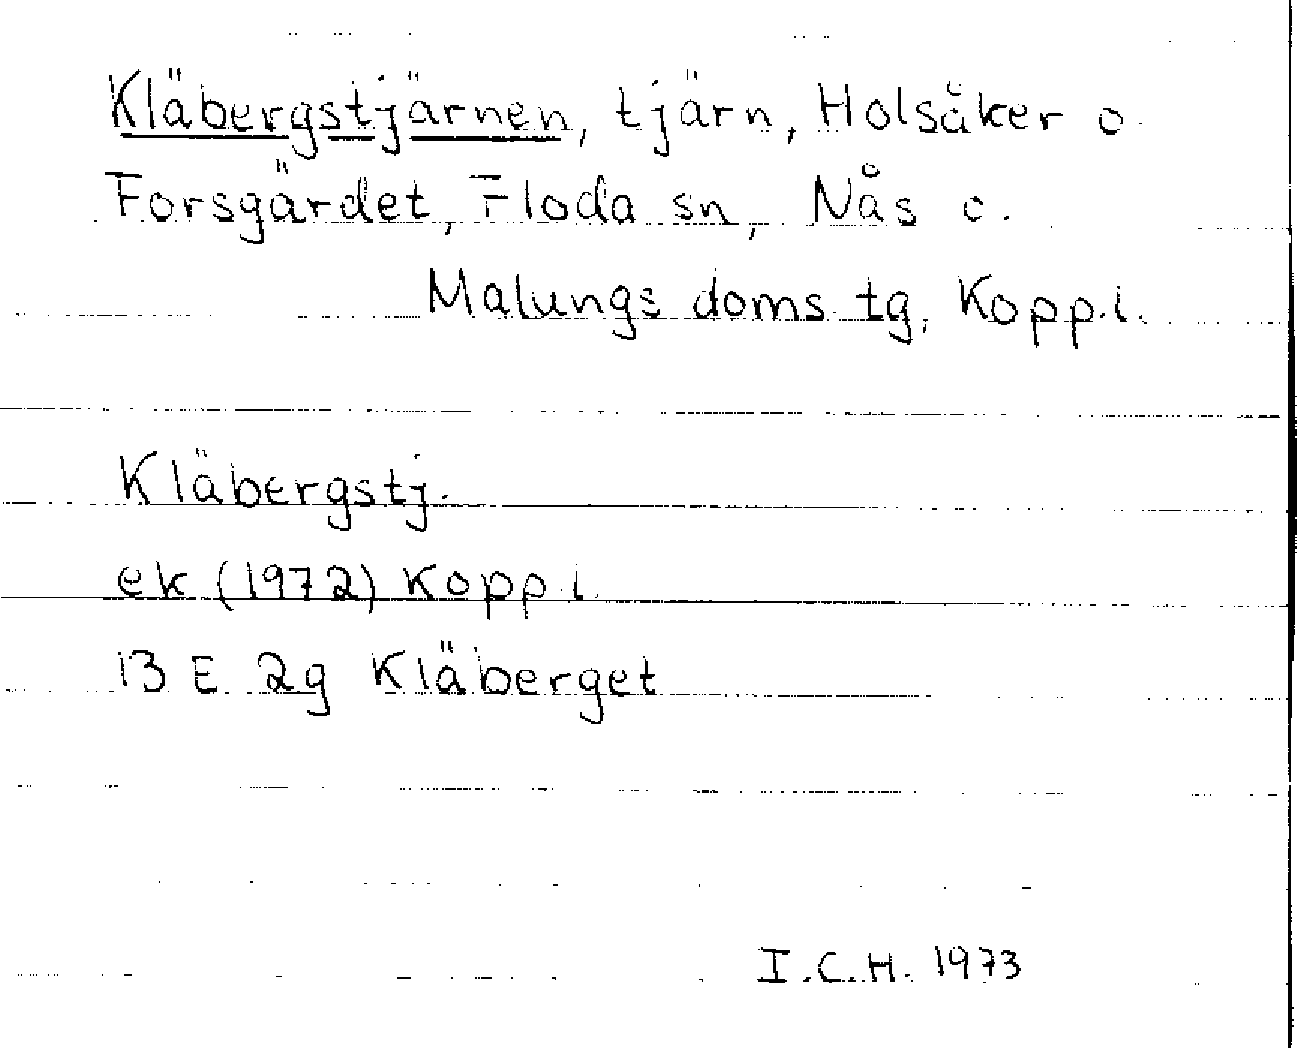 Kläbergstjärnen, tjärn, Holsåker o.
Forsgärdet, Floda sn, Nås o.
Malungs doms tg, Kopp.l.
Kläbergstj.
ek (1972) Kopp.l.
13 E 2g Kläberget
I.C.H. 1973